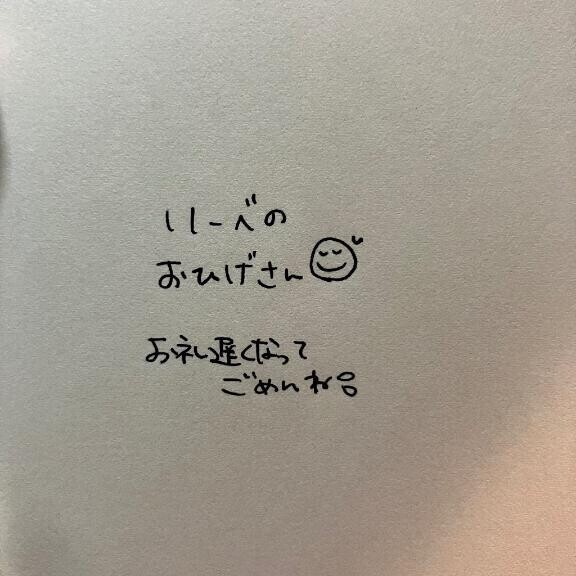 リーベの
おひげさん
お礼遅くなって
ごめんね